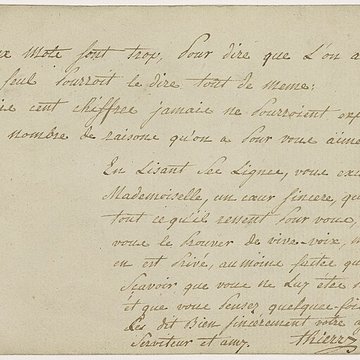 Mots sont trop, Pour dire que L'on a
seul Pourroit le dire tout de meme:
cent chiffres jamais ne Pourroient
nombre de raisons qu'on a Pour vous aime
En Lisant ses Lignes, vous
Mademoiselle, un cœur sincere, q
tout ce qu'il ressent Pour vous,
vous le Prouver de vive-voix,
on est Privé, au moins faites q
Scavoir que vous ne Luy étés
et que vous Pensez quelque-foi
Dit Bien sincerement votre
Serviteur et amy. thierry